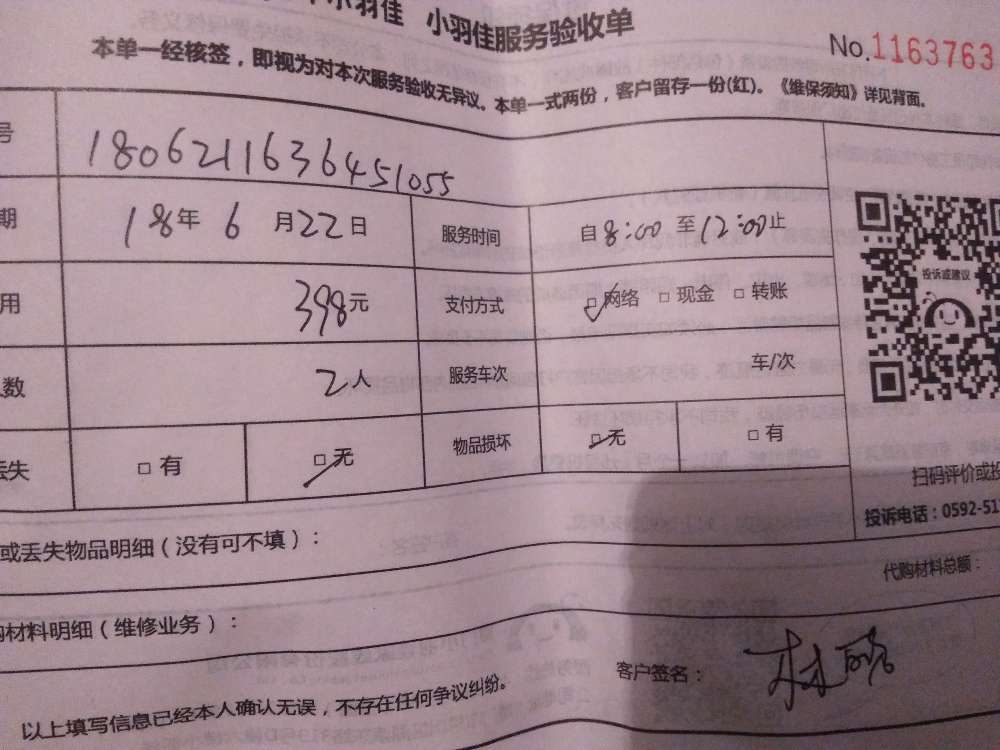 小羽佳 小羽佳服务验收单
No.1163763
本单一经核签，即视为对本次服务验收无异议。本单一式两份，客户留存一份(红)。《维保须知》详见背面。
号 1806211636451055
期 18年 6 月22日 服务时间 自8:00 至12:00止
用 398元 支付方式 □网络 □现金 □转账
投诉或建议
数 2人 服务车次 车/次
丢失 □有 □无 物品损坏 □无 □有
扫码评价或投
投诉电话：0592-51
或丢失物品明细（没有可不填）：
代购材料总额：
购材料明细（维修业务）：
客户签名：
以上填写信息已经本人确认无误，不存在任何争议纠纷。